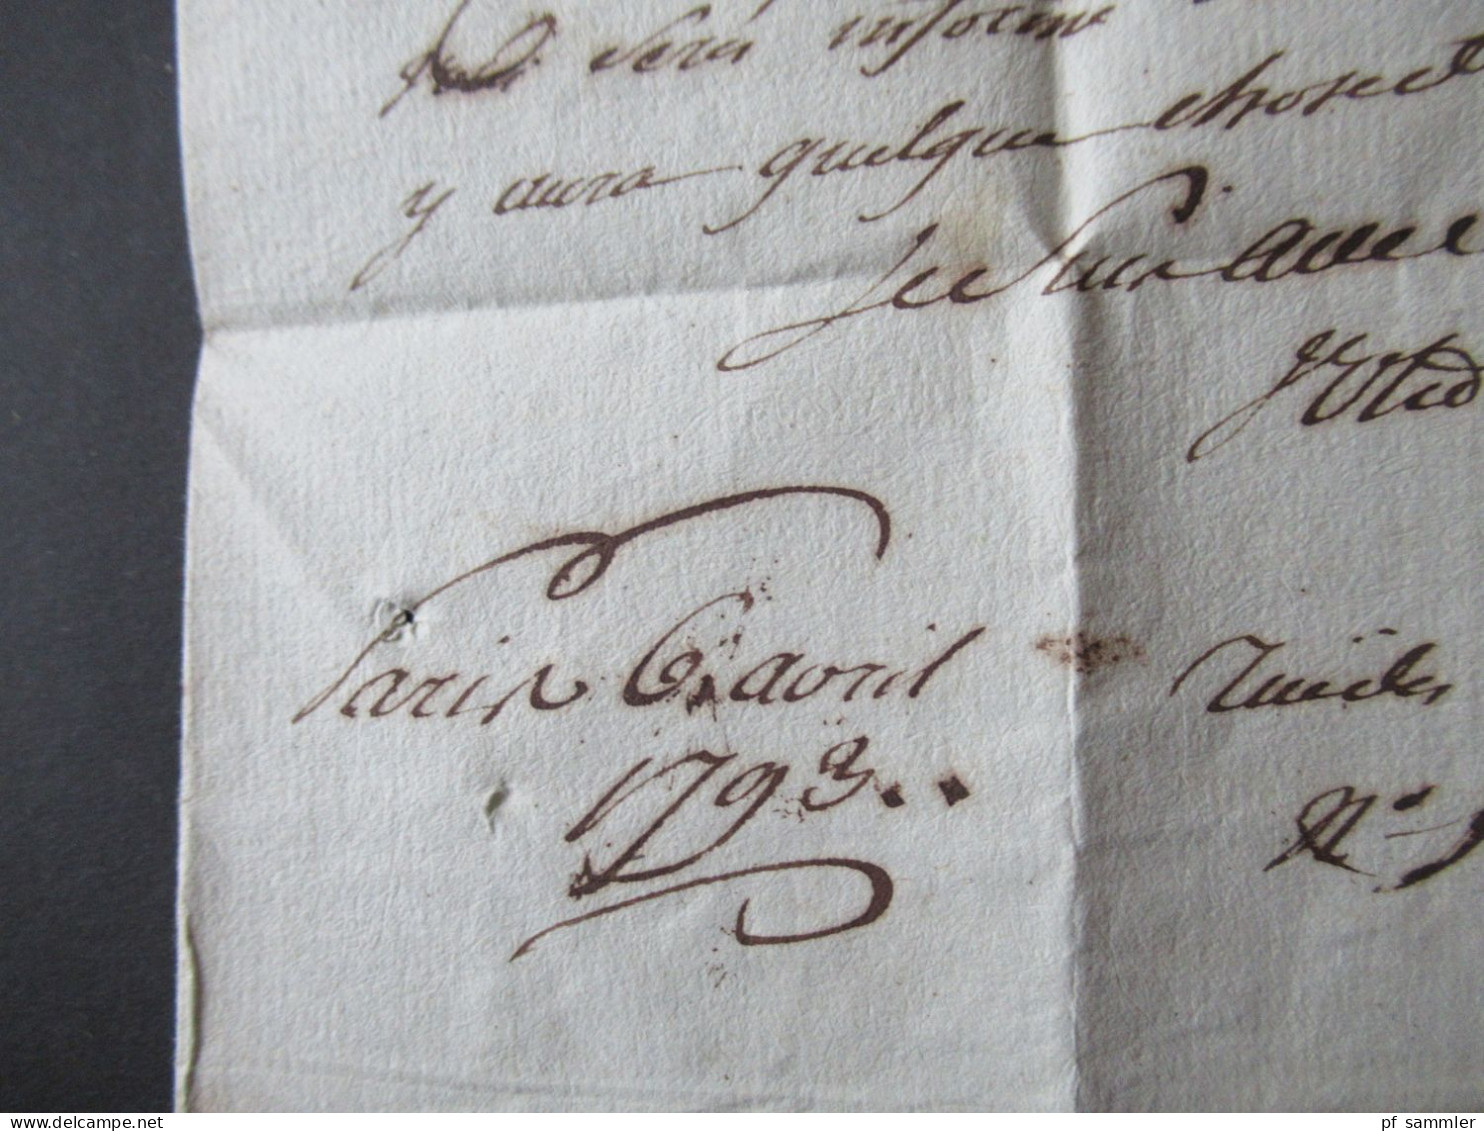 sera informé
y aura quelque chose
Je suis avec
Paris 6 avril
1793..
N°
delcampe.net
pf_sammler